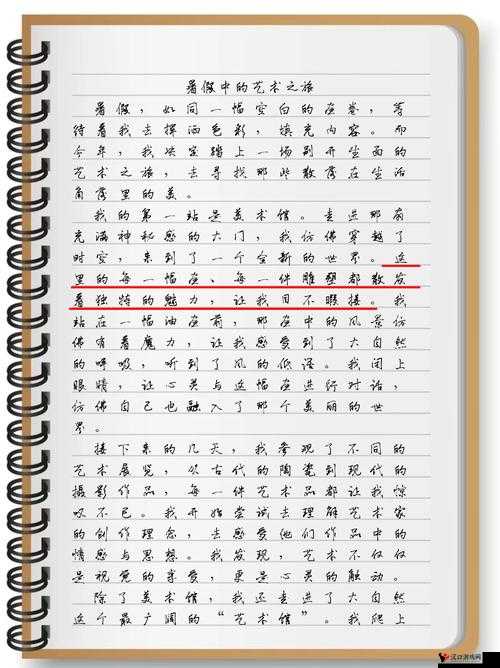 暑假中的艺术之旅
暑假，如同一幅空白的画卷，等
待着我去挥洒色彩，填充内容。而
今年，我决定踏上一场别开生面的
艺术之旅，去寻找那些散落在生活
角落里的美。
我的第一站是美术馆。走进那扇
充满神秘感的大门，我仿佛穿越了
时空，来到了一个全新的世界。这
里的每一幅画、每一件雕塑都散发
着独特的魅力，让我目不暇接。我
站在一幅油画前，那画中的风景仿
佛有着魔力，让我感受到了大自然
的呼吸，听到了风的低语。我闭上
眼睛，让心灵与这幅画进行对话，
仿佛自己也融入了那个美丽的世
界。
接下来的几天，我参观了不同的
艺术展览，从古代的陶瓷到现代的
摄影作品，每一件艺术品都让我惊
叹不已。我开始尝试去理解艺术家
的创作理念，去感受他们作品中的
情感与思想。我发现，艺术不仅仅
是视觉的享受，更是心灵的触动。
除了美术馆，我还走进了大自然
这个最广阔的“艺术馆”。我爬上
汉口游戏网